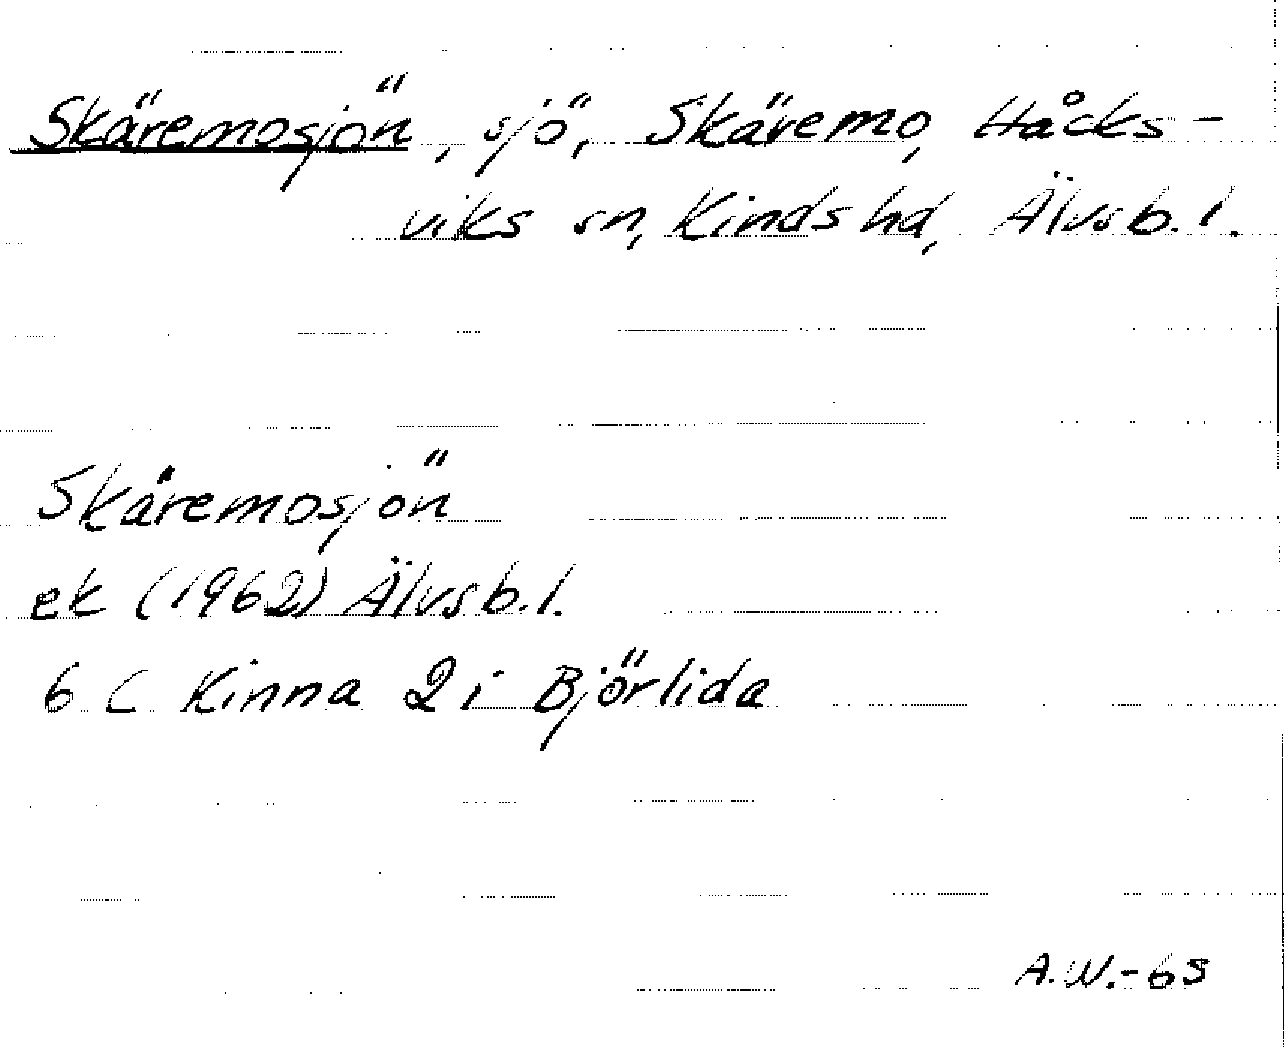 Skäremosjön, sjö, Skäremo, Håcks-
viks sn, Kinds hd, Älvsb. l.
Skäremosjön
ek (1962) Älvsb. l.
6 C Kinna 2 i Björlida
A.W.-65